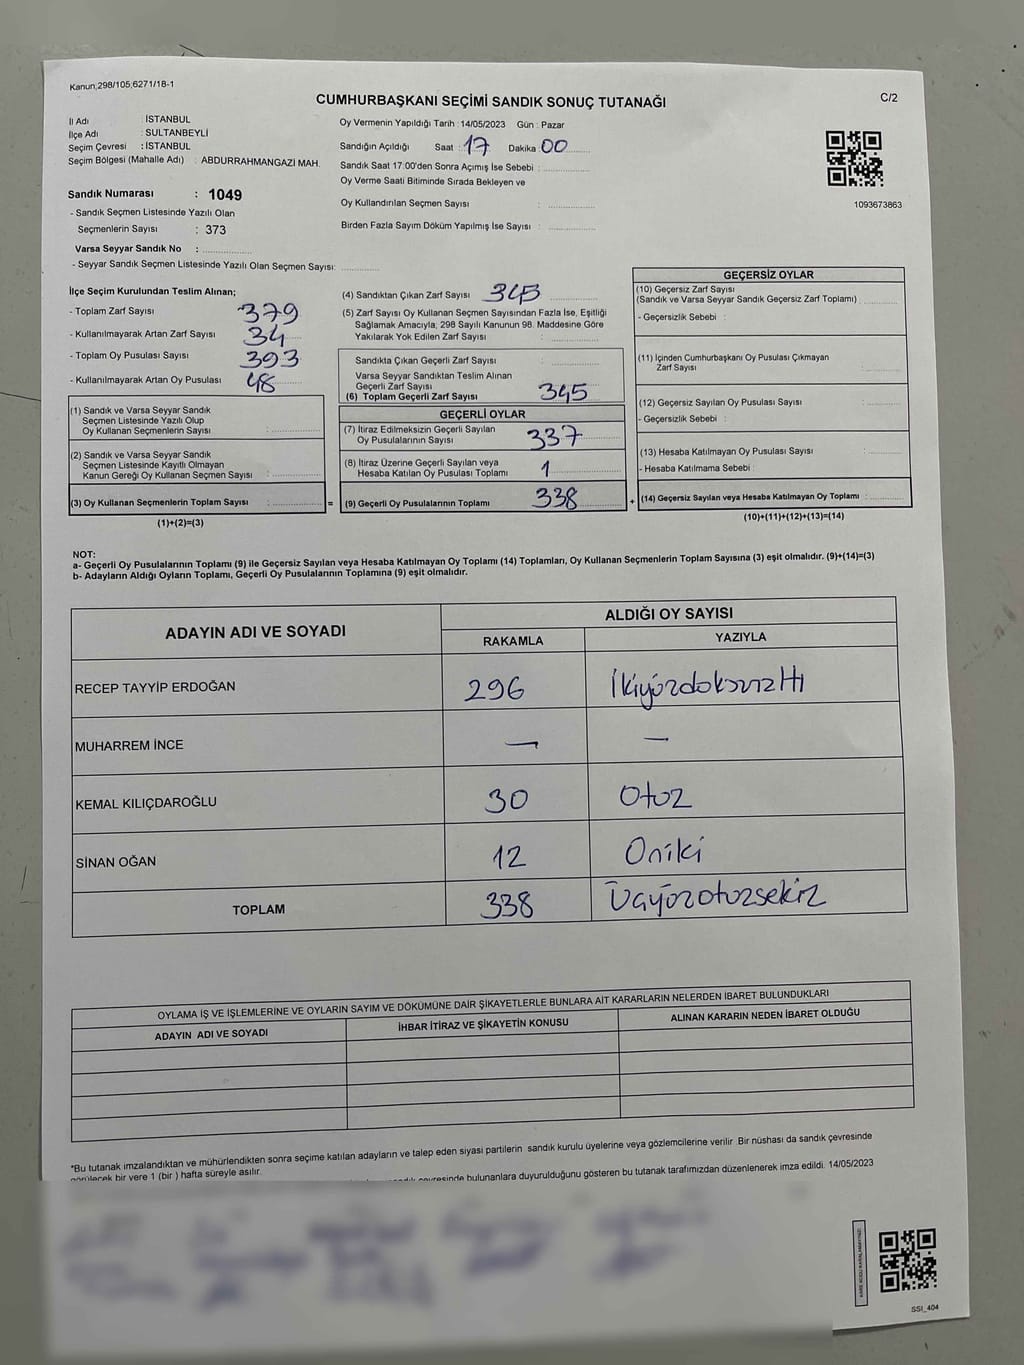 Kanun;298/105,6271/18-1
CUMHURBAŞKANI SEÇİMİ SANDIK SONUÇ TUTANAĞI
C/2
İl Adı : İSTANBUL
İlçe Adı : SULTANBEYLİ
Seçim Çevresi : İSTANBUL
Seçim Bölgesi (Mahalle Adı) : ABDURRAHMANGAZİ MAH.
Sandık Numarası : 1049
- Sandık Seçmen Listesinde Yazılı Olan
Seçmenlerin Sayısı : 373
Varsa Seyyar Sandık No :
- Seyyar Sandık Seçmen Listesinde Yazılı Olan Seçmen Sayısı:
Oy Vermenin Yapıldığı Tarih : 14/05/2023 Gün : Pazar
Sandığın Açıldığı Saat : 17 Dakika : 00
Sandık Saat 17:00'den Sonra Açımış İse Sebebi :
Oy Verme Saati Bitiminde Sırada Bekleyen ve
Oy Kullandırılan Seçmen Sayısı :
Birden Fazla Sayım Döküm Yapılmış İse Sayısı :
1093673863
İlçe Seçim Kurulundan Teslim Alınan;
- Toplam Zarf Sayısı 379
- Kullanılmayarak Artan Zarf Sayısı 34
- Toplam Oy Pusulası Sayısı 393
- Kullanılmayarak Artan Oy Pusulası 48
(1) Sandık ve Varsa Seyyar Sandık
Seçmen Listesinde Yazılı Olup
Oy Kullanan Seçmenlerin Sayısı :
(2) Sandık ve Varsa Seyyar Sandık
Seçmen Listesinde Kayıtlı Olmayan
Kanun Gereği Oy Kullanan Seçmen Sayısı :
(3) Oy Kullanan Seçmenlerin Toplam Sayısı :
(1)+(2)=(3)
=
(4) Sandıktan Çıkan Zarf Sayısı 345
(5) Zarf Sayısı Oy Kullanan Seçmen Sayısından Fazla İse, Eşitliği
Sağlamak Amacıyla, 298 Sayılı Kanunun 98. Maddesine Göre
Yakılarak Yok Edilen Zarf Sayısı :
Sandıkta Çıkan Geçerli Zarf Sayısı :
Varsa Seyyar Sandıktan Teslim Alınan
Geçerli Zarf Sayısı
(6) Toplam Geçerli Zarf Sayısı 345
GEÇERLİ OYLAR
(7) İtiraz Edilmeksizin Geçerli Sayılan
Oy Pusulalarının Sayısı 337
(8) İtiraz Üzerine Geçerli Sayılan veya
Hesaba Katılan Oy Pusulası Toplamı 1
(9) Geçerli Oy Pusulalarının Toplamı 338
+
GEÇERSİZ OYLAR
(10) Geçersiz Zarf Sayısı
(Sandık ve Varsa Seyyar Sandık Geçersiz Zarf Toplamı) :
- Geçersizlik Sebebi :
(11) İçinden Cumhurbaşkanı Oy Pusulası Çıkmayan
Zarf Sayısı :
(12) Geçersiz Sayılan Oy Pusulası Sayısı :
- Geçersizlik Sebebi :
(13) Hesaba Katılmayan Oy Pusulası Sayısı :
- Hesaba Katılmama Sebebi :
(14) Geçersiz Sayılan veya Hesaba Katılmayan Oy Toplamı :
(10)+(11)+(12)+(13)=(14)
NOT:
a- Geçerli Oy Pusulalarının Toplamı (9) ile Geçersiz Sayılan veya Hesaba Katılmayan Oy Toplamı (14) Toplamları, Oy Kullanan Seçmenlerin Toplam Sayısına (3) eşit olmalıdır. (9)+(14)=(3)
b- Adayların Aldığı Oyların Toplamı, Geçerli Oy Pusulalarının Toplamına (9) eşit olmalıdır.
ADAYIN ADI VE SOYADI
ALDIĞI OY SAYISI
RAKAMLA YAZIYLA
RECEP TAYYİP ERDOĞAN 296 İkiyüzdoksanaltı
MUHARREM İNCE — —
KEMAL KILIÇDAROĞLU 30 Otuz
SİNAN OĞAN 12 Oniki
TOPLAM 338 Üçyüzotuzsekiz
OYLAMA İŞ VE İŞLEMLERİNE VE OYLARIN SAYIM VE DÖKÜMÜNE DAİR ŞİKAYETLERLE BUNLARA AİT KARARLARIN NELERDEN İBARET BULUNDUKLARI
ADAYIN ADI VE SOYADI İHBAR İTİRAZ VE ŞİKAYETİN KONUSU ALINAN KARARIN NEDEN İBARET OLDUĞU
*Bu tutanak imzalandıktan ve mühürlendikten sonra seçime katılan adayların ve talep eden siyasi partilerin sandık kurulu üyelerine veya gözlemcilerine verilir Bir nüshası da sandık çevresinde
görülecek bir yere 1 (bir ) hafta süreyle asılır. çevresinde bulunanlara duyurulduğunu gösteren bu tutanak tarafımızdan düzenlenerek imza edildi. 14/05/2023
SSI_404